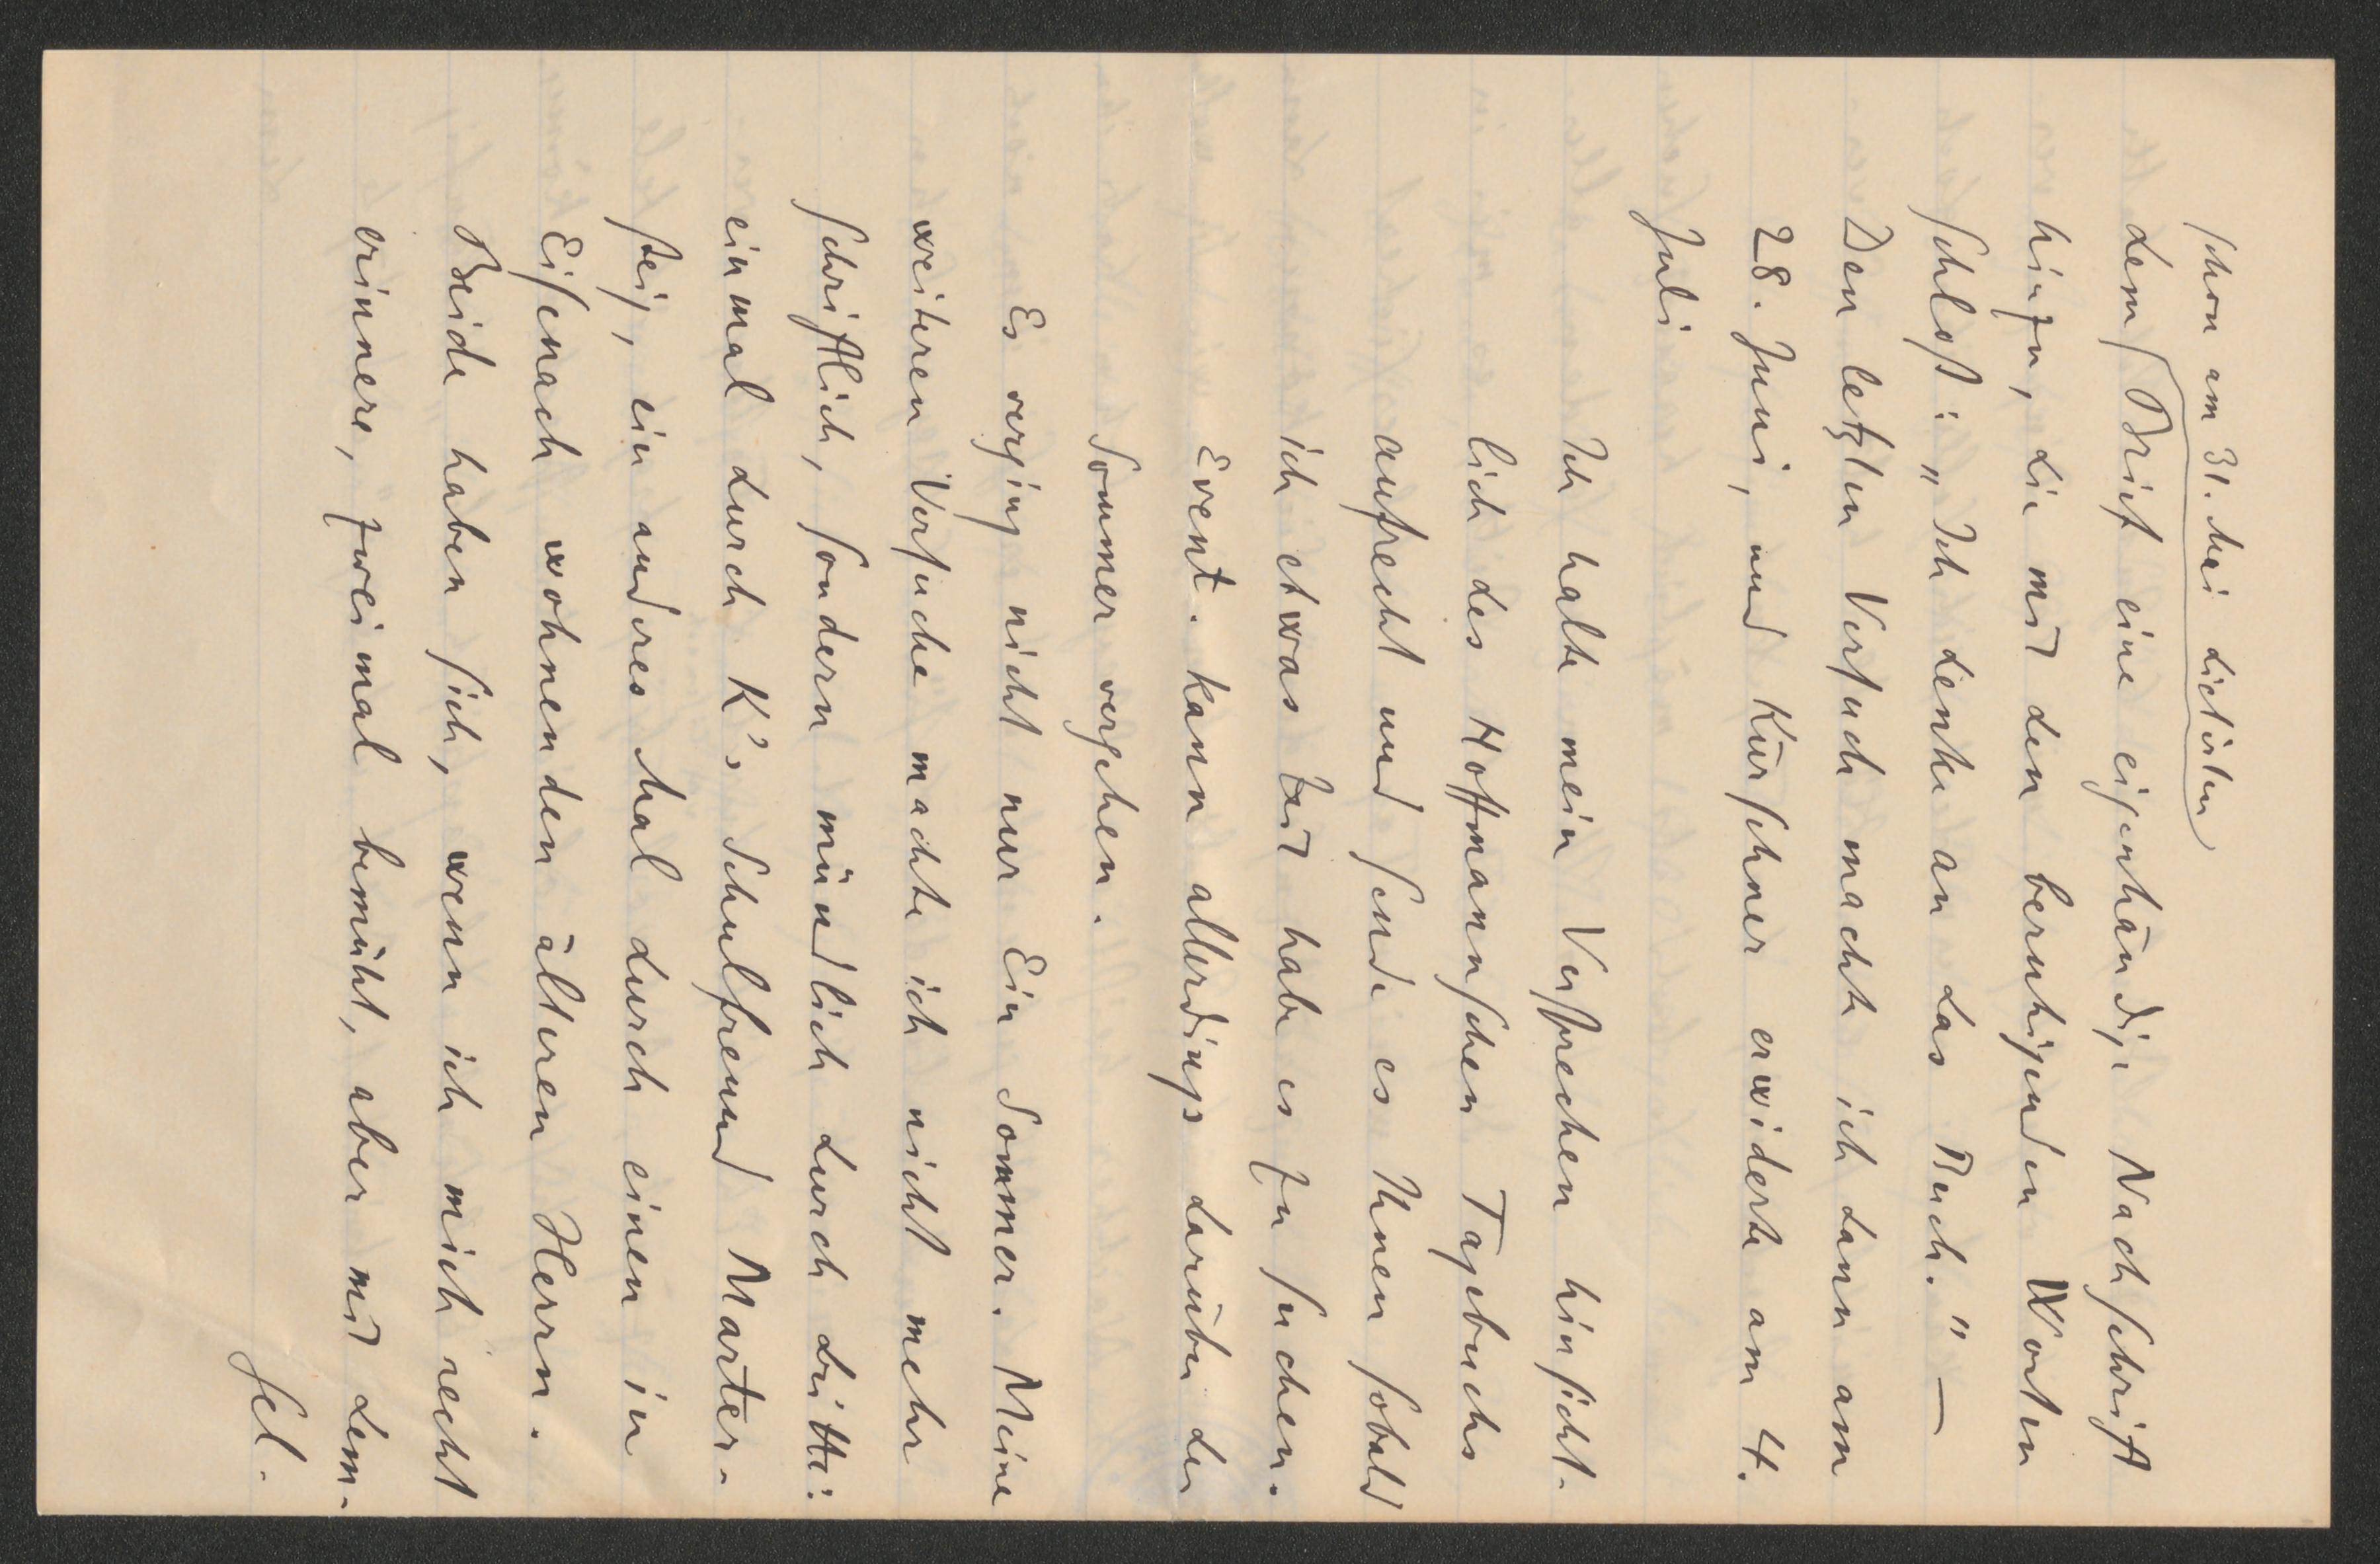 schon am 31. Mai dictirten
dem Brief eine eigenhändige Nachschrift
hinzu, die mit den beruhigenden Worten
schloß: „Ich denke an das Buch." —
Den letzten Versuch machte ich dann am
28. Juni, und Kürschner erwiderte am 4.
Juli
Ich halte mein Versprechen hinsicht-
lich des Hoffmannschen Tagebuchs
aufrecht und sende es Ihnen sobald
ich etwas Zeit habe es zu suchen.
Event. kann allerdings darüber der
Sommer vergehen.
Es verging nicht nur Ein Sommer. Meine
weiteren Versuche machte ich nicht mehr
schriftlich, sondern mündlich durch Dritte:
einmal durch K's Schulfreund Marter-
steig, ein andres Mal durch einen in
Eisenach wohnenden älteren Herrn.
Beide haben sich, wenn ich mich recht
erinnere, zweimal bemüht, aber mit dem-
sel-